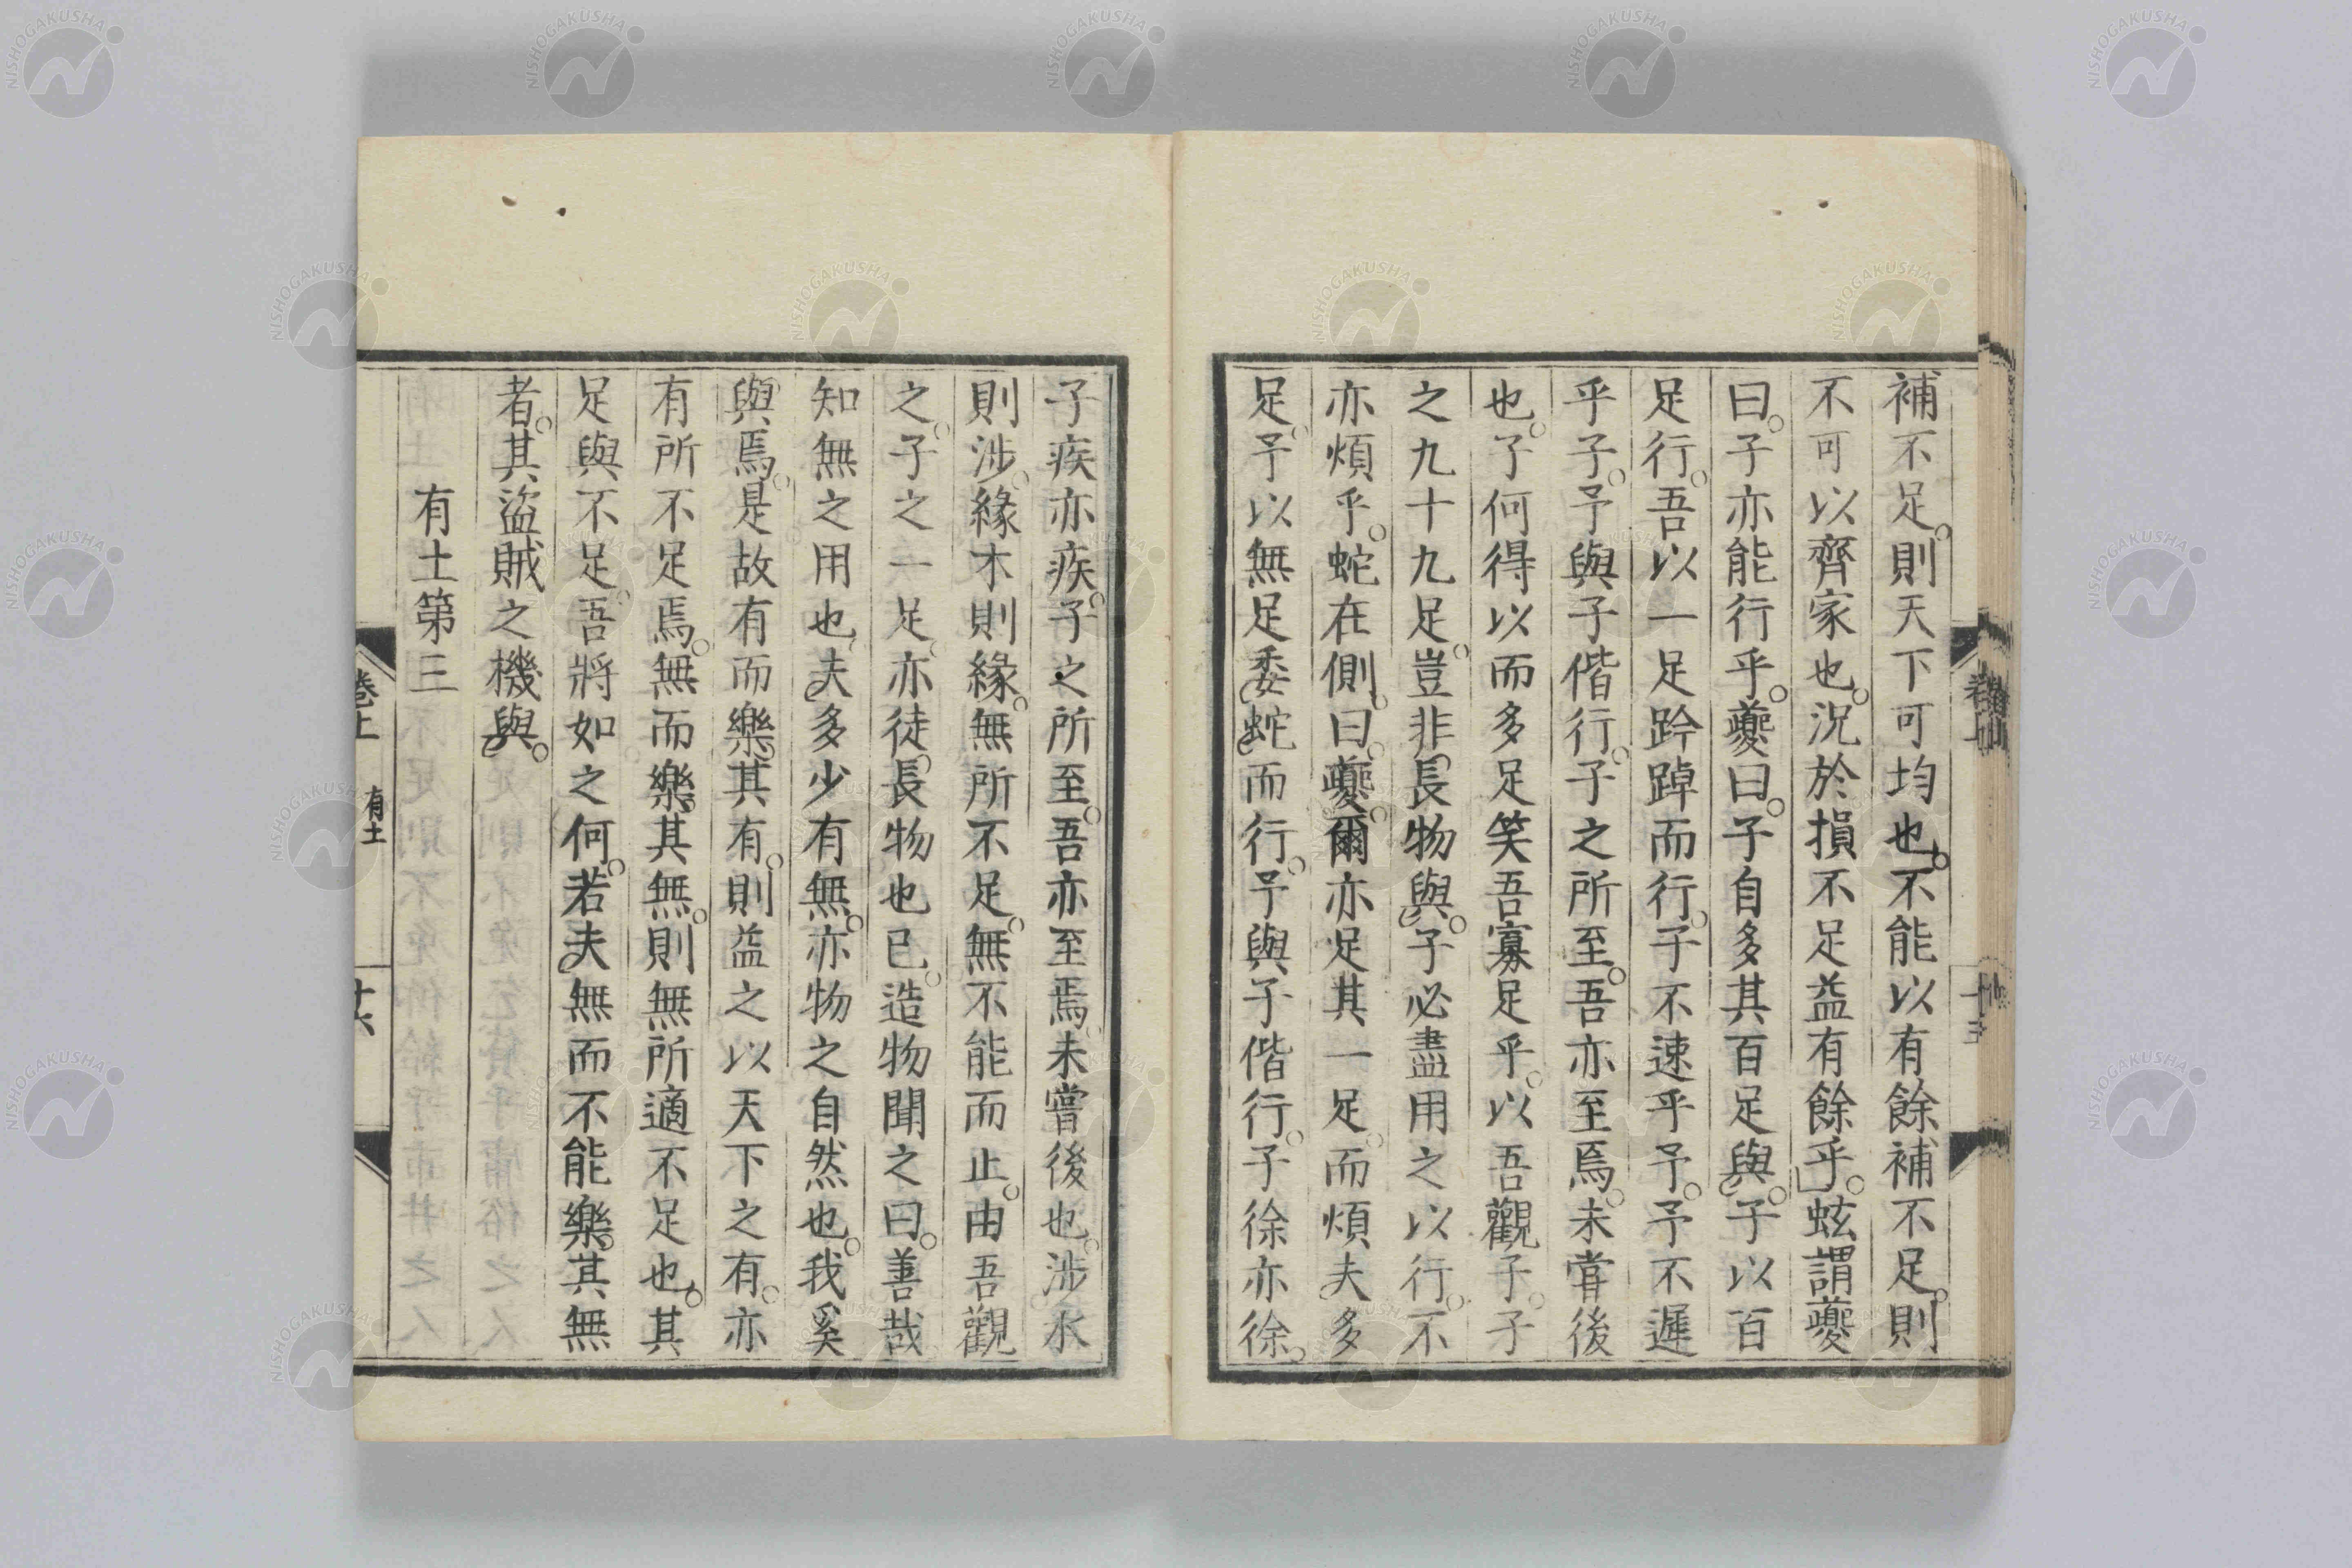 補不足。則天下可均也。不能以有餘補不足。則
不可以齊家也。況於損不足益有餘乎。」蚿謂夔
曰。子亦能行乎。夔曰。子自多其百足與。子以百
足行。吾以一足趻踔而行。子不速乎予。予不遲
乎子。予與子偕行。子之所至。吾亦至焉。未嘗後
也。子何得以而多足笑吾寡足乎。以吾觀子。子
之九十九足。豈非長物與。子必盡用之以行。不
亦煩乎。蛇在側。曰。夔。爾亦足其一足。而煩夫多
足。予以無足委蛇而行。予與子偕行。子徐亦徐。
子疾亦疾。子之所至。吾亦至焉。未嘗後也。涉水
則涉。緣木則緣。無所不足。無不能而止。由吾觀
之。子之一足。亦徒長物也已。造物聞之曰。善哉
知無之用也。夫多少有無。亦物之自然也。我奚
與焉。是故有而樂其有。則益之以天下之有。亦
有所不足焉。無而樂其無。則無所適不足也。其
足與不足。吾將如之何。若夫無而不能樂其無
者。其盜賊之機與。
有土第三
卷上
有土
NISHOGAKUSHA